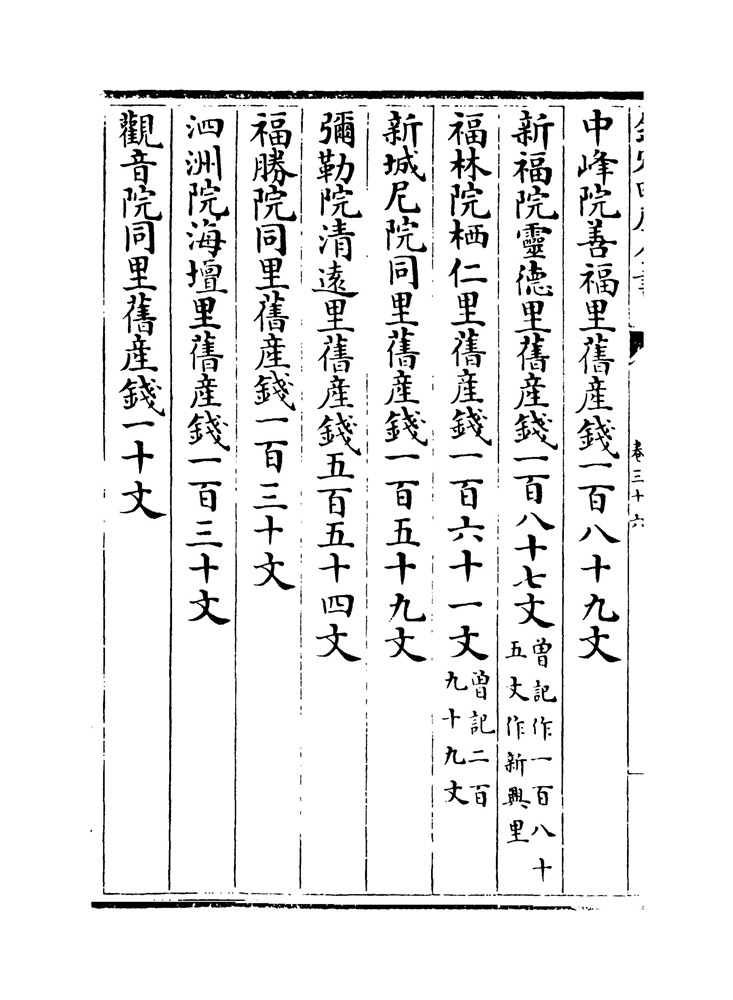 卷三十六
中峰院善福里舊産錢一百八十九文
新福院靈德里舊産錢一百八十七文曾記作一百八十五文作新興里
福林院栖仁里舊産錢一百六十一文曾記二百九十九文
新城尼院同里舊産錢一百五十九文
彌勒院清遠里舊産錢五百五十四文
福勝院同里舊産錢一百三十文
泗洲院海壇里舊産錢一百三十文
觀音院同里舊産錢一十文